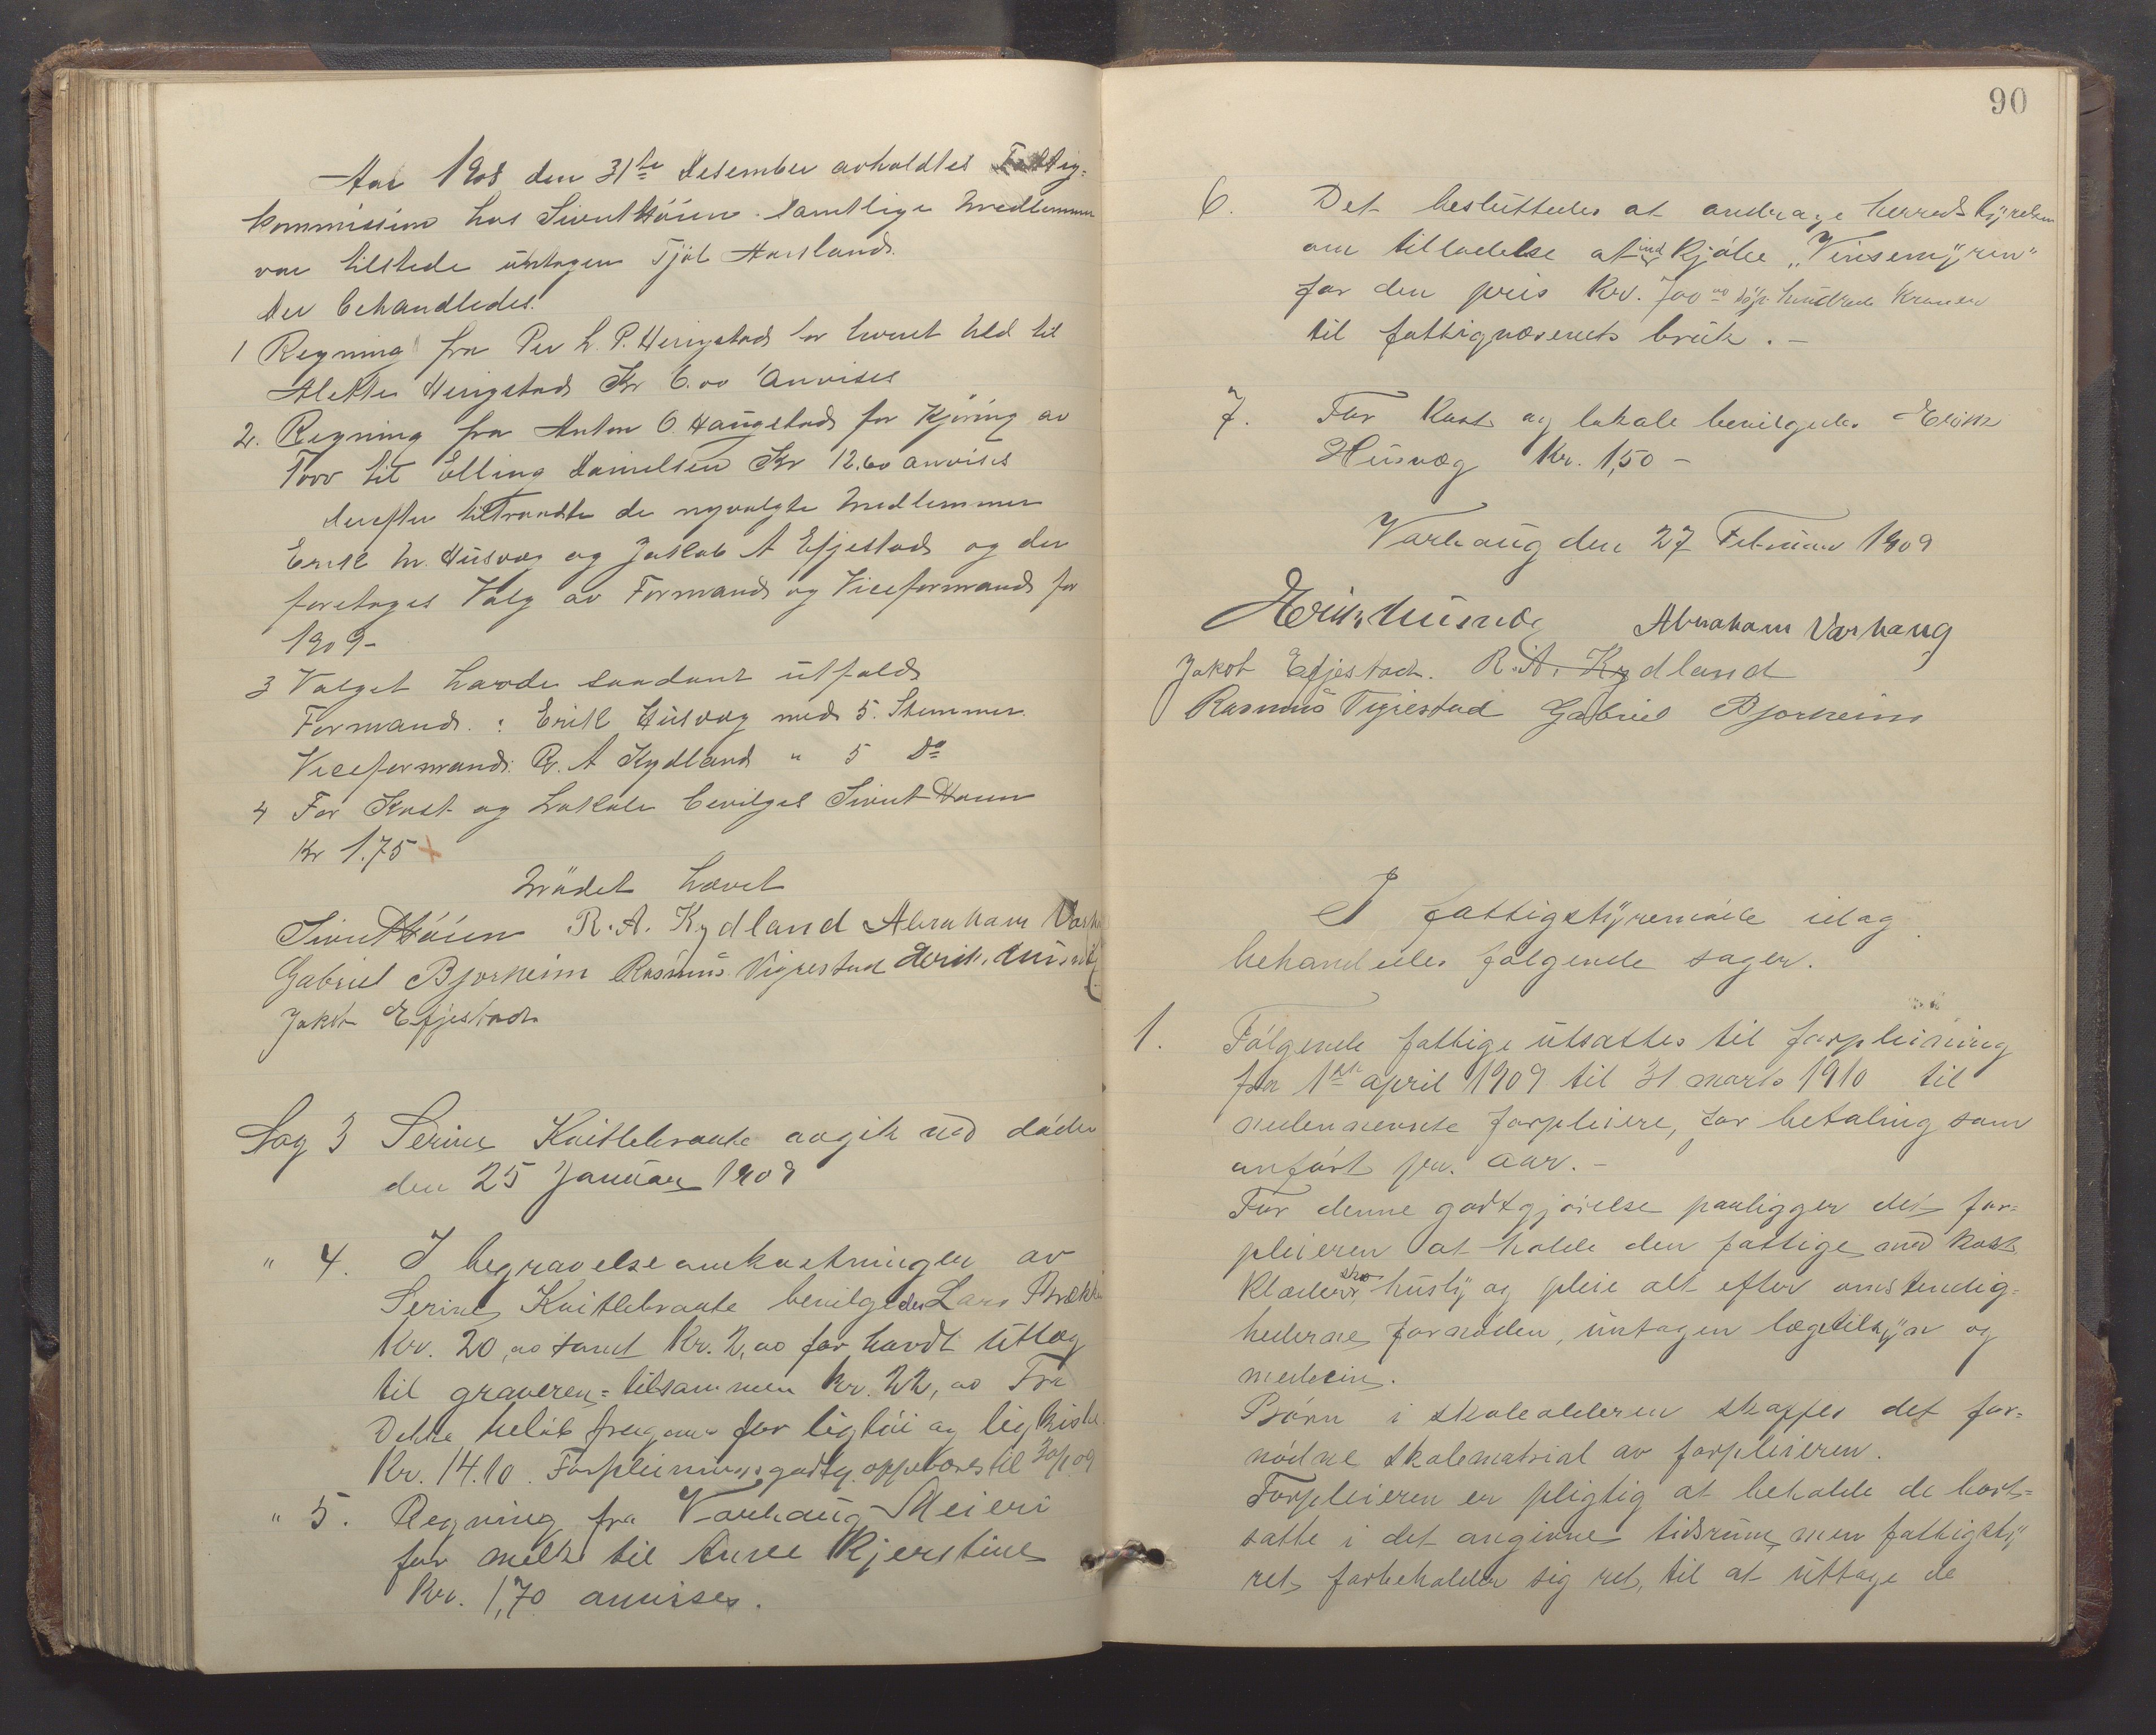 Aar 1908 den 31te Desember avholdtes Fattig-
kommission hos Sivert Höien. Samtlige Medlemmer
var tilstede undtagen Tjöl Aarsland.
Der behandledes.
1 Regning fra Per L. P. Herigstad for levert Uld til
Alette Herigstad Kr 6.00 Anvises
2. Regning fra Anton O. Haugstad for Kjöring av
Torv til Elling Danielsen Kr 12,60 anvises
derefter tiltraadte de nyvalgte Medlemmer
Erik M. Husvæg og Jakob A Efjestad og der
foretoges Valg av Formand og Viceformand for
1909-
3 Valget havde saadant utfald
Formand. : Erik Husvæg med 5. Stemmer.
Viceformand: R. A Kydland " 5 Do
4 For Kost og Lokale bevilges Sivert Höien
Kr 1.75 +
Mödet hævet
Sivert Höien R. A. Kydland Abraham Varh
Gabriel Bjorheim Rasmus Vigrestad Herik. Husvæg
Jakob Efjestad
Sag 3 Serine Kvitlebraate avgik ved döden
den 25 Januar 1909
" 4. I begravelseomkostninger av
Serine Kvitlebraate bevilgedes Lars Brække
Kr. 20,00 samt Kr. 2,00 for havdt Utlæg
til graveren = tilsammen Kr. 22,00 Fra
Dette belöb fragaar for ligtöi og ligkiste
Kr. 14.10. Forpleiningsgodtg. oppebæres til 30/1 09
" 5. Regning fra Varhaug Meieri
for melk til Anne Kjerstine
Kr. 1,70 anvises.
90
6. Det besluttedes at andrage herredsstyrelsen
om tilladelse at indkjöbe "Vinsemyren"
for den pris Kr. 700 00 syv hundrede Kroner
til fattigvæsenets bruk. -
7. For Kost og lokale bevilgedes Erik
Husvæg Kr. 1,50 -
Varhaug den 27 Februar 1909
Herik. Husvæg Abraham Varhaug
Jakob Efjestad. R. A. Kydland
Rasmus Vigrestad Gabriel Bjorheim
I fattigstyremöde idag
behandledes fölgende sager.
1. Fölgende fattige utsættes til forpleining
fra 1ste april 1909 til 31 marts 1910 til
nedennevnte forpleiere, for betaling som
anfört pr. aar. -
For denne godtgjörelse paaligger det for-
pleieren at holde den fattige med kost
Klæder, sko husly og pleie alt efter omstendig-
hederne fornöden, untagen lægetilsyn og
medicin.
Börn i skolealderen skaffes det for-
nödne skolematrial av forpleieren.
Forpleieren er pligtig at beholde de bort-
satte i det angivne tidsrum, men fattigsty-
ret forbeholder sig ret, til at uttage de